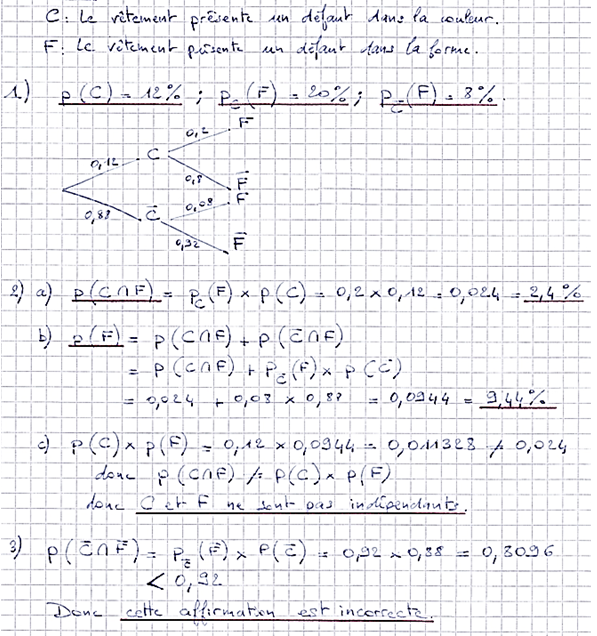 C: Le vêtement présente un défaut dans la couleur.
F: Le vêtement présente un défaut dans la forme.
1) p(C) = 12% ; p_C(F) = 20% ; p_C̄(F) = 8%.
0,2 F
0,12 C
0,8 F̄
0,08 F
0,88 C̄
0,92 F̄
2) a) p(C∩F) = p_C(F) × p(C) = 0,2 × 0,12 = 0,024 = 2,4%
b) p(F) = p(C∩F) + p(C̄∩F)
= p(C∩F) + p_C̄(F) × p(C̄)
= 0,024 + 0,08 × 0,88 = 0,0944 = 9,44%
c) p(C) × p(F) = 0,12 × 0,0944 = 0,011328 ≠ 0,024
donc p(C∩F) ≠ p(C) × p(F)
donc C et F ne sont pas indépendants.
3) p(C̄∩F̄) = p_C̄(F̄) × p(C̄) = 0,92 × 0,88 = 0,8096
< 0,92
Donc cette affirmation est incorrecte.